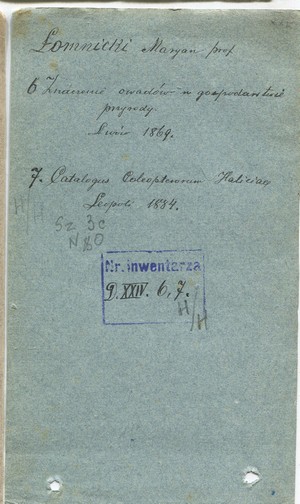 Łomnicki Maryan prof.
6 Znaczenie owadów w gospodarstwie
przyrody.
Lwów 1869.
7. Catalogus Coleopterorum Haliciae
Leopoli 1884.
H/H
Sz 3c
N 80
Nr. inwentarza
D. XXIV. 6, 7.
H/H